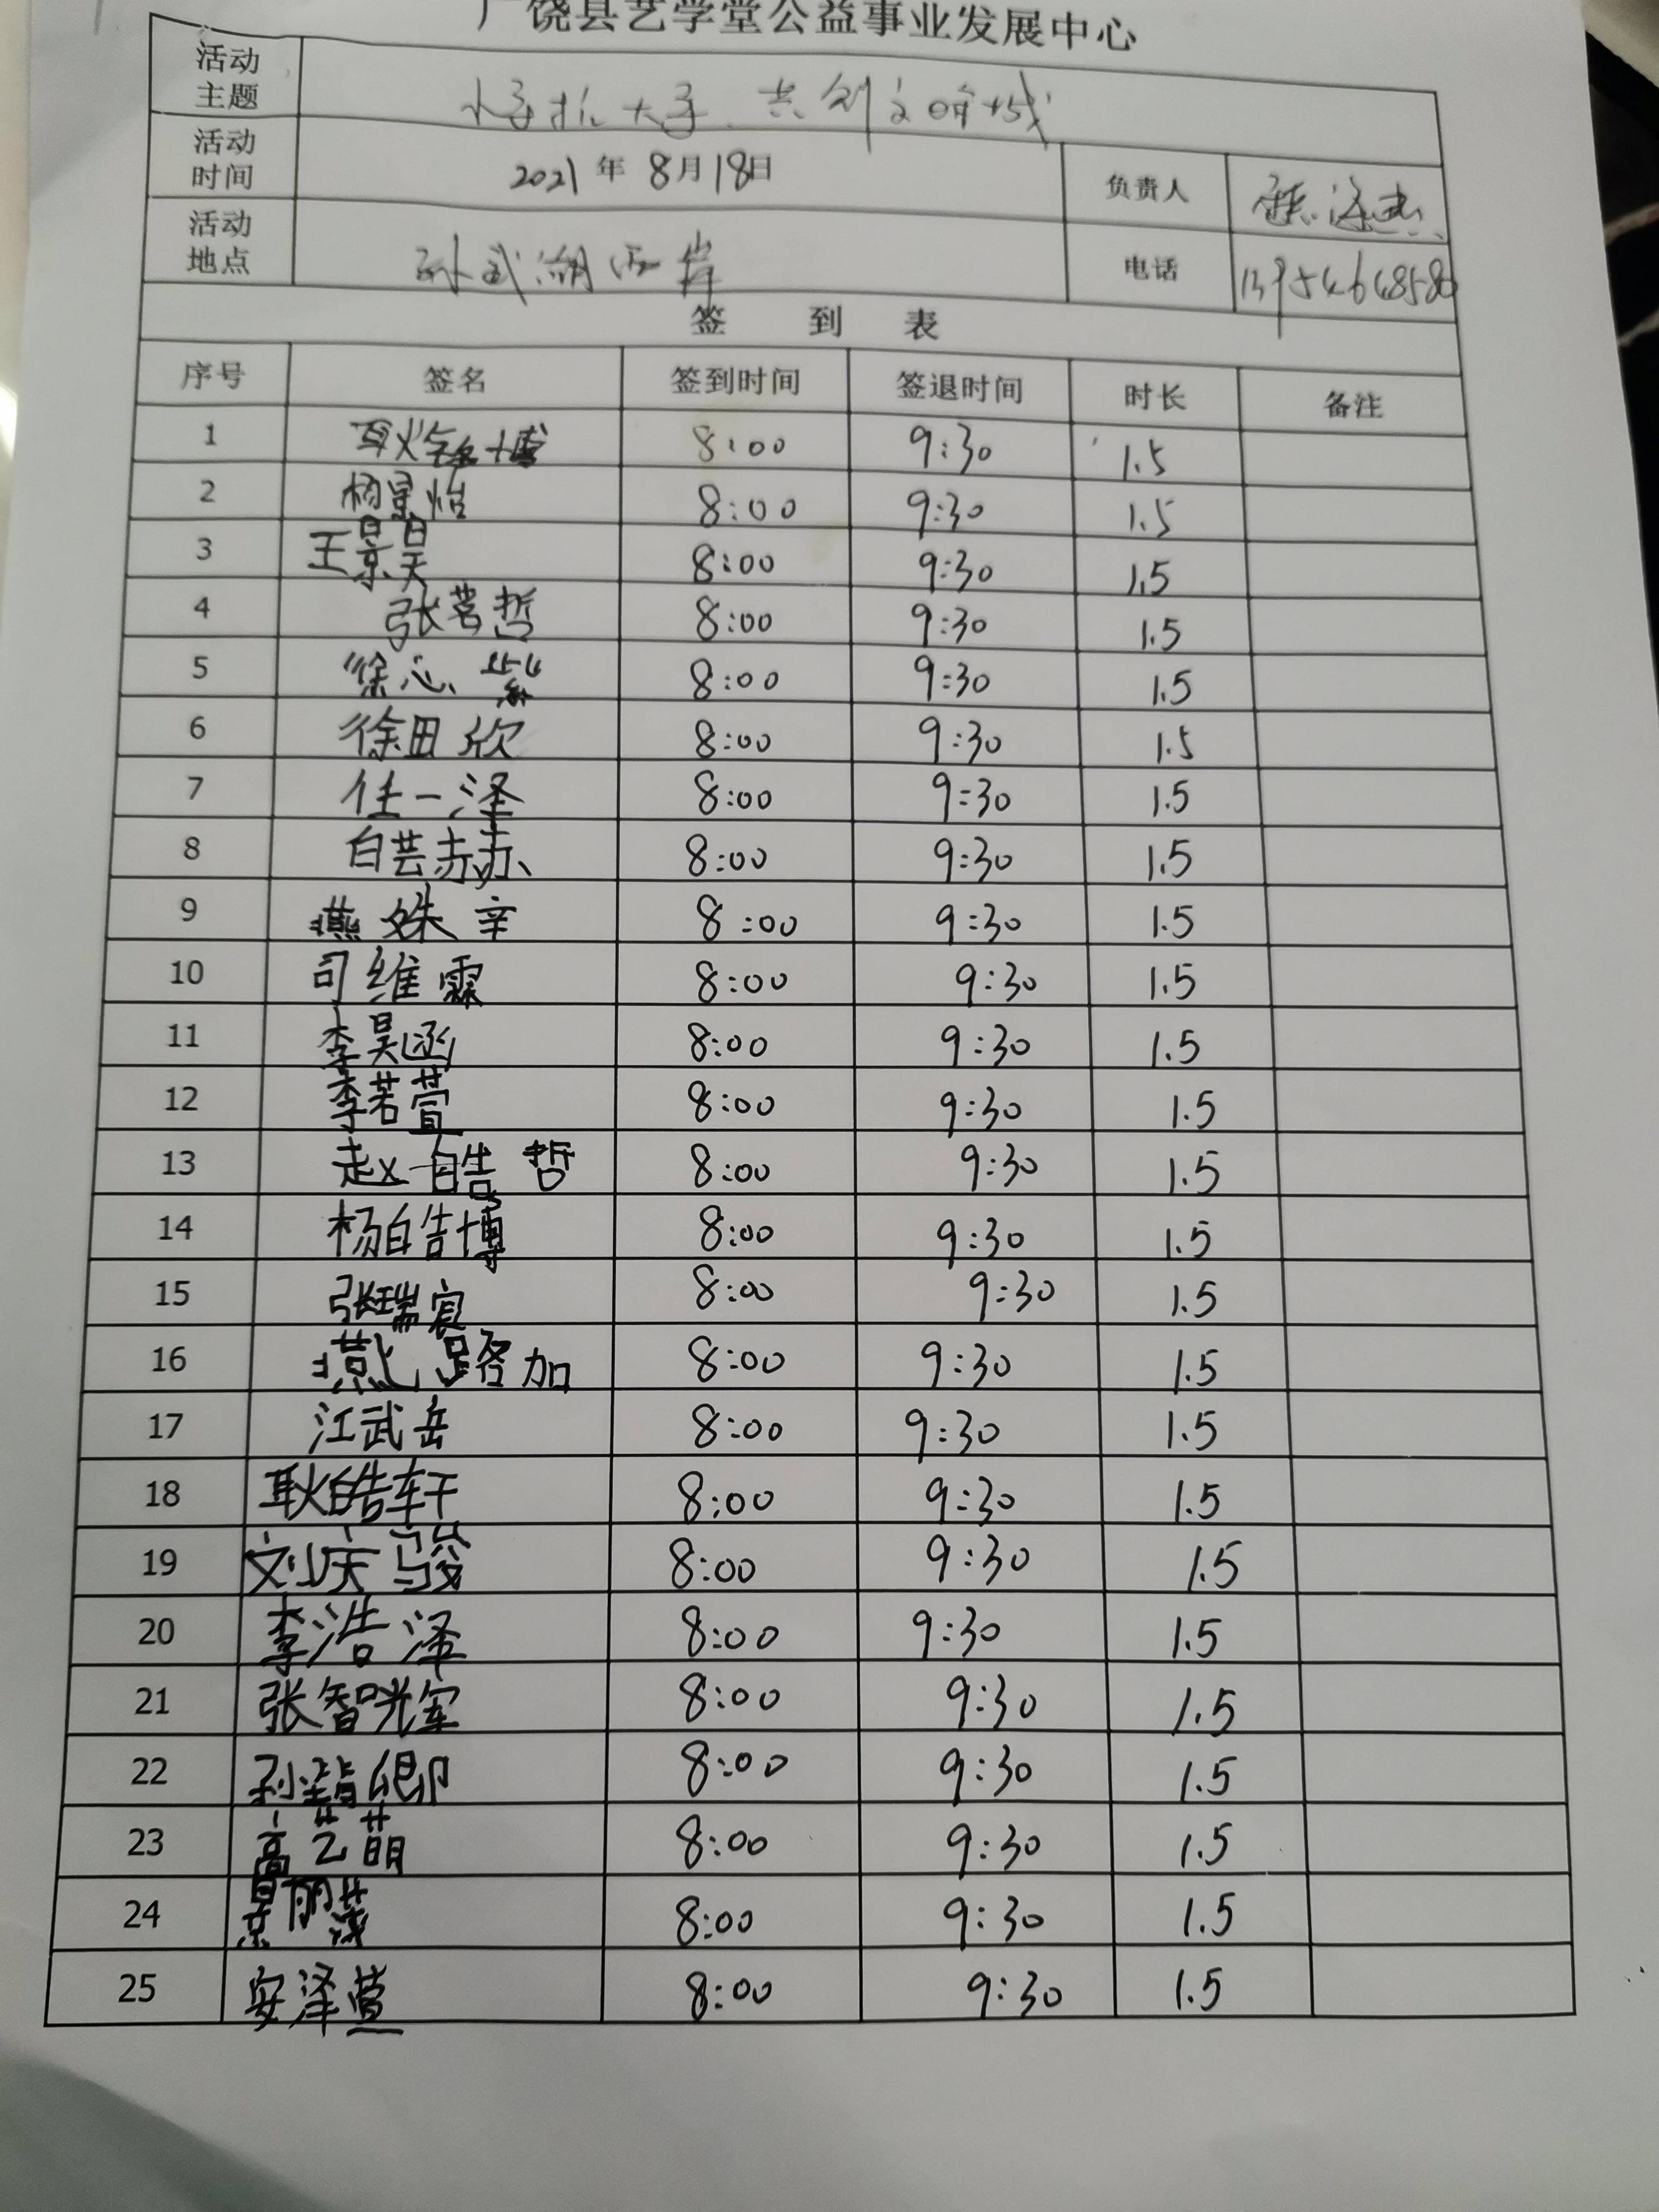 广饶县艺学堂公益事业发展中心
活动主题 小手拉大手 共创文明城
活动时间 2021年8月18日 负责人
活动地点 孙武湖西岸 电话
签到表
序号 签名 签到时间 签退时间 时长 备注
1 耿铭博 8:00 9:30 1.5
2 杨景怡 8:00 9:30 1.5
3 王景昊 8:00 9:30 1.5
4 张茗哲 8:00 9:30 1.5
5 徐心紫 8:00 9:30 1.5
6 徐田欣 8:00 9:30 1.5
7 任一泽 8:00 9:30 1.5
8 白芸赫 8:00 9:30 1.5
9 燕姝辛 8:00 9:30 1.5
10 司维霖 8:00 9:30 1.5
11 李昊函 8:00 9:30 1.5
12 李若萱 8:00 9:30 1.5
13 赵皓哲 8:00 9:30 1.5
14 杨皓博 8:00 9:30 1.5
15 张瑞宸 8:00 9:30 1.5
16 燕路加 8:00 9:30 1.5
17 江武岳 8:00 9:30 1.5
18 耿皓轩 8:00 9:30 1.5
19 刘庆骏 8:00 9:30 1.5
20 李浩泽 8:00 9:30 1.5
21 张智 8:00 9:30 1.5
22 孙 卿 8:00 9:30 1.5
23 高艺萌 8:00 9:30 1.5
24 景丽 8:00 9:30 1.5
25 安泽萱 8:00 9:30 1.5